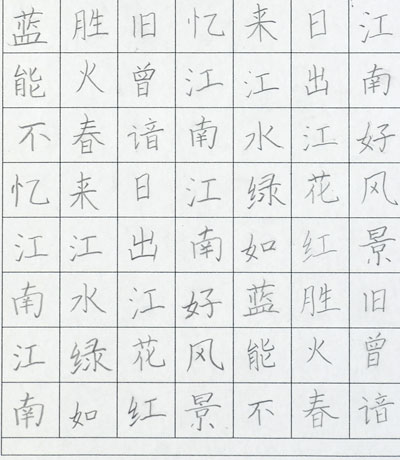 蓝胜旧忆来日江
能火曾江江出南
不春谙南水江好
忆来日江绿花风
江江出南如红景
南水江好蓝胜旧
江绿花风能火曾
南如红景不春谙